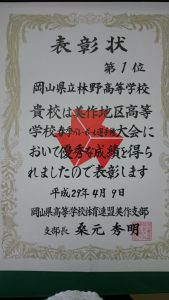 表彰状
第1位
岡山県立林野高等学校
貴校は美作地区高等
学校春季バレーボール選手権大会に
おいて優秀な成績を得ら
れましたので表彰します
平成29年4月9日
岡山県高等学校体育連盟美作支部
支部長 桑元秀明